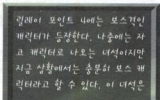 릴레이 포인트 너에는 보스격인
캐릭터가 등장한다. 나중에는 자
코 캐릭터로 나오는 녀석이지만
지금 상황에서는 충분히 보스 캐
릭터라고 할 수 있다. 이 녀석은